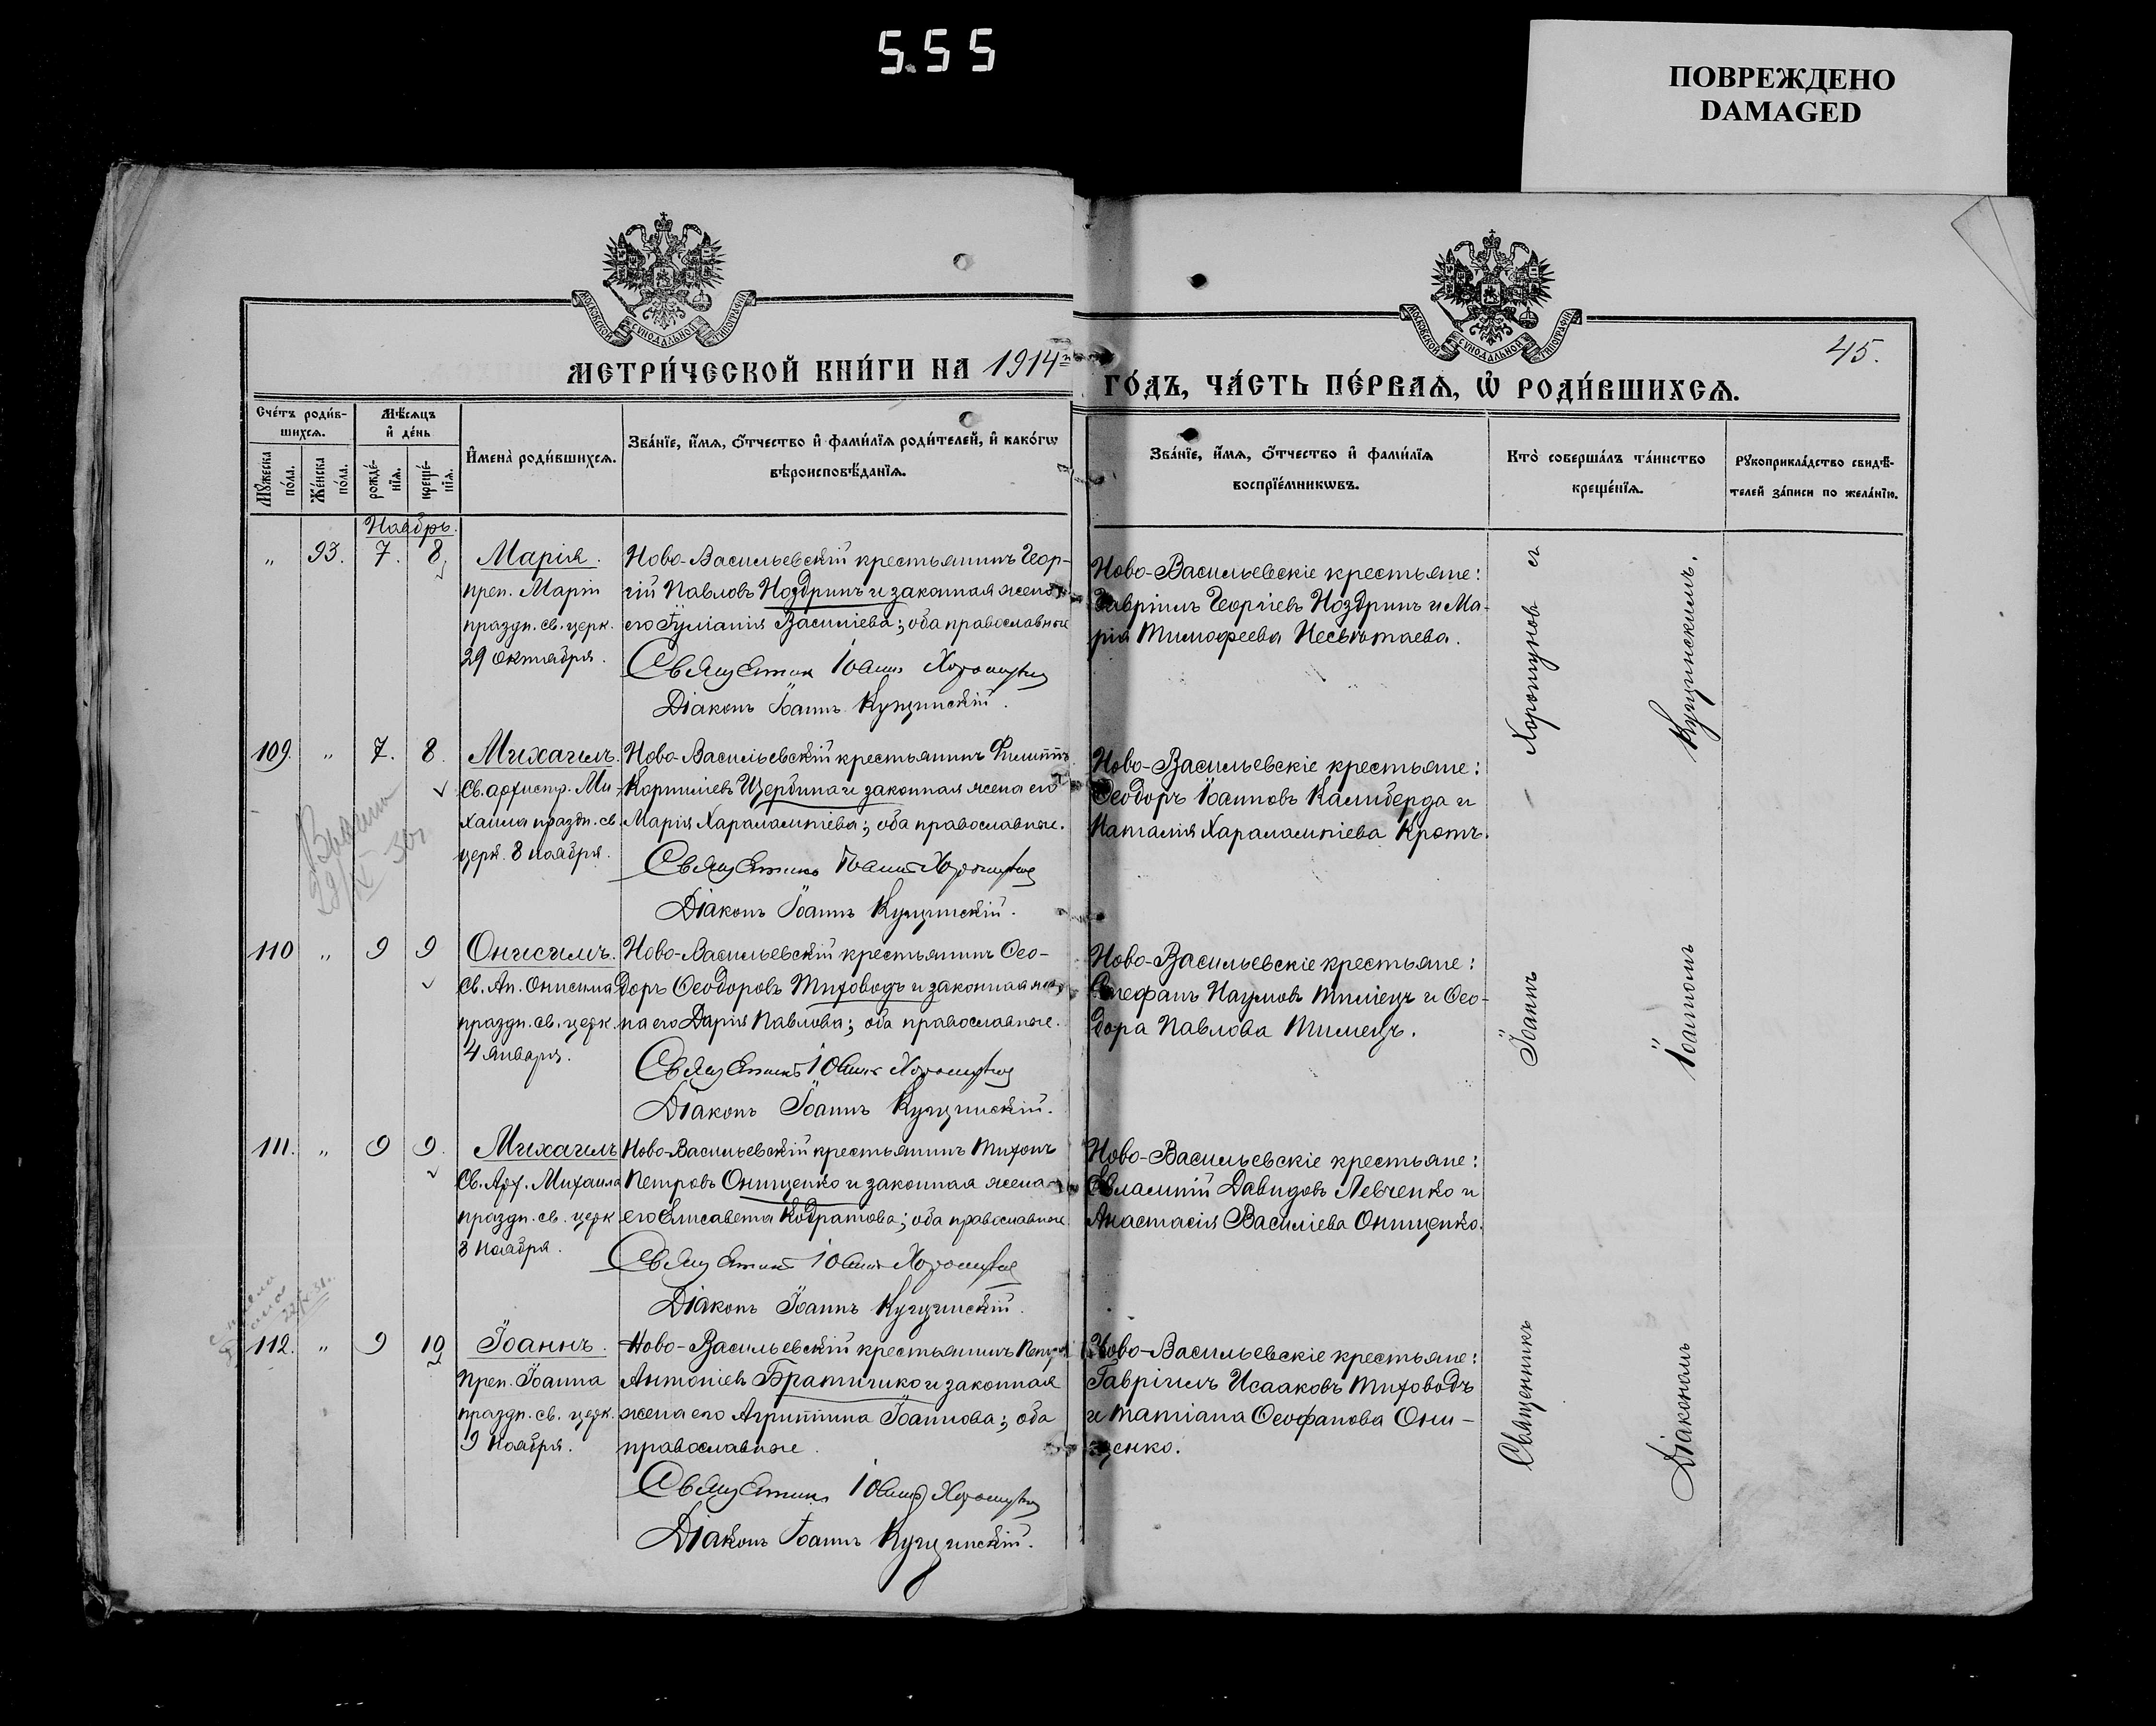 5.55
ПОВРЕЖДЕНО
DAMAGED
МОСКОВСКОЙ СѴНОДАЛЬНОЙ ТИПОГРАФІИ
МОСКОВСКОЙ СѴНОДАЛЬНОЙ ТИПОГРАФІИ
45.
МЕТРИ́ЧЕСКОЙ КНИ́ГИ НА 1914
ГО́ДЪ, ЧА́СТЬ ПЕ́РВАѦ, Ѡ҆ РОДИ́ВШИХСѦ.
Сче́тъ роди́в-
шихсѧ.
Мѣ́сѧцъ
и҆ де́нь
Мꙋ́жеска
по́ла.
Же́нска
по́ла.
рожде́-
нїѧ.
креще́-
нїѧ.
И҆мена̀ роди́вшихсѧ.
Зва́нїе, и҆́мѧ, ѻ҆́тчество и҆ фами́лїѧ роди́телей, и҆ како́гѡ
вѣроисповѣ́данїѧ.
Зва́нїе, и҆́мѧ, ѻ҆́тчество и҆ фами́лїѧ
воспрїе́мникѡвъ.
Кто̀ соверша́лъ та́инство
креще́нїѧ.
Рꙋкоприкла́дство свидѣ́-
телей за́писи по жела́нїю.
Ноябрь.
„ 93. 7. 8.
Марія.
преп. Маріи
праздн. св. церк.
29 октября.
Ново-Васильевскій крестьянинъ Геор-
гій Павловъ Ноздринъ и законная жена
его Іуліанія Василіева; оба православные
Священник Іоанн Хорошунов
Діаконъ Іоаннъ Кущинскій.
Ново-Васильевскіе крестьяне:
Гавріилъ Георгіевъ Ноздринъ и Ма-
рія Тимофеева Несвѣтаева.
109. „ 7. 8.
Михаилъ.
Св. архистр. Ми-
хаила праздн. св.
церк. 8 ноября.
Ново-Васильевскій крестьянинъ Филиппъ
Корниліевъ Щербина и законная жена его
Марія Харалампіева; оба православные.
Священник Іоанн Хорошунов
Діаконъ Іоаннъ Кущинскій.
Ново-Васильевскіе крестьяне:
Ѳеодоръ Іоанновъ Калиберда и
Наталія Харалампіева Кротъ.
110 „ 9 9
Онисимъ.
Св. Ап. Онисима
праздн. св. церк.
4 января.
Ново-Васильевскій крестьянинъ Ѳео-
доръ Ѳеодоровъ Тиховодъ и законная же-
на его Дарія Павлова; оба православные.
Священникъ Іоанн Хорошунов
Діаконъ Іоаннъ Кущинскій.
Ново-Васильевскіе крестьяне:
Стефанъ Наумовъ и Ѳео-
дора Павлова
111. „ 9 9.
Михаилъ
Св. Арх. Михаила
праздн. св. церк
8 ноября.
Ново-Васильевскій крестьянинъ Тихонъ
Петровъ Онищенко и законная жена
его Елисавета Кодратова; оба православные
Священник Іоанн Хорошунов
Діаконъ Іоаннъ Кущинскій.
Ново-Васильевскіе крестьяне:
Евлампій Давидовъ Левченко и
Анастасія Василіева Онищенко.
112. „ 9 10
Іоаннъ.
Преп. Іоанна
праздн. св. церк.
9 ноября.
Ново-Васильевскій крестьянинъ Петръ
Антоніевъ Братишко и законная
жена его Агриппина Іоаннова; оба
православные.
Священник Іоанн Хорошунов
Діаконъ Іоаннъ Кущинскій.
Ново-Васильевскіе крестьяне:
Гавріилъ Исааковъ Тиховодъ
и Татіана Ѳеофанова Они-
щенко.
Священникъ Іоаннъ Хорошунов съ
Діакономъ Іоанномъ Кущинскимъ.